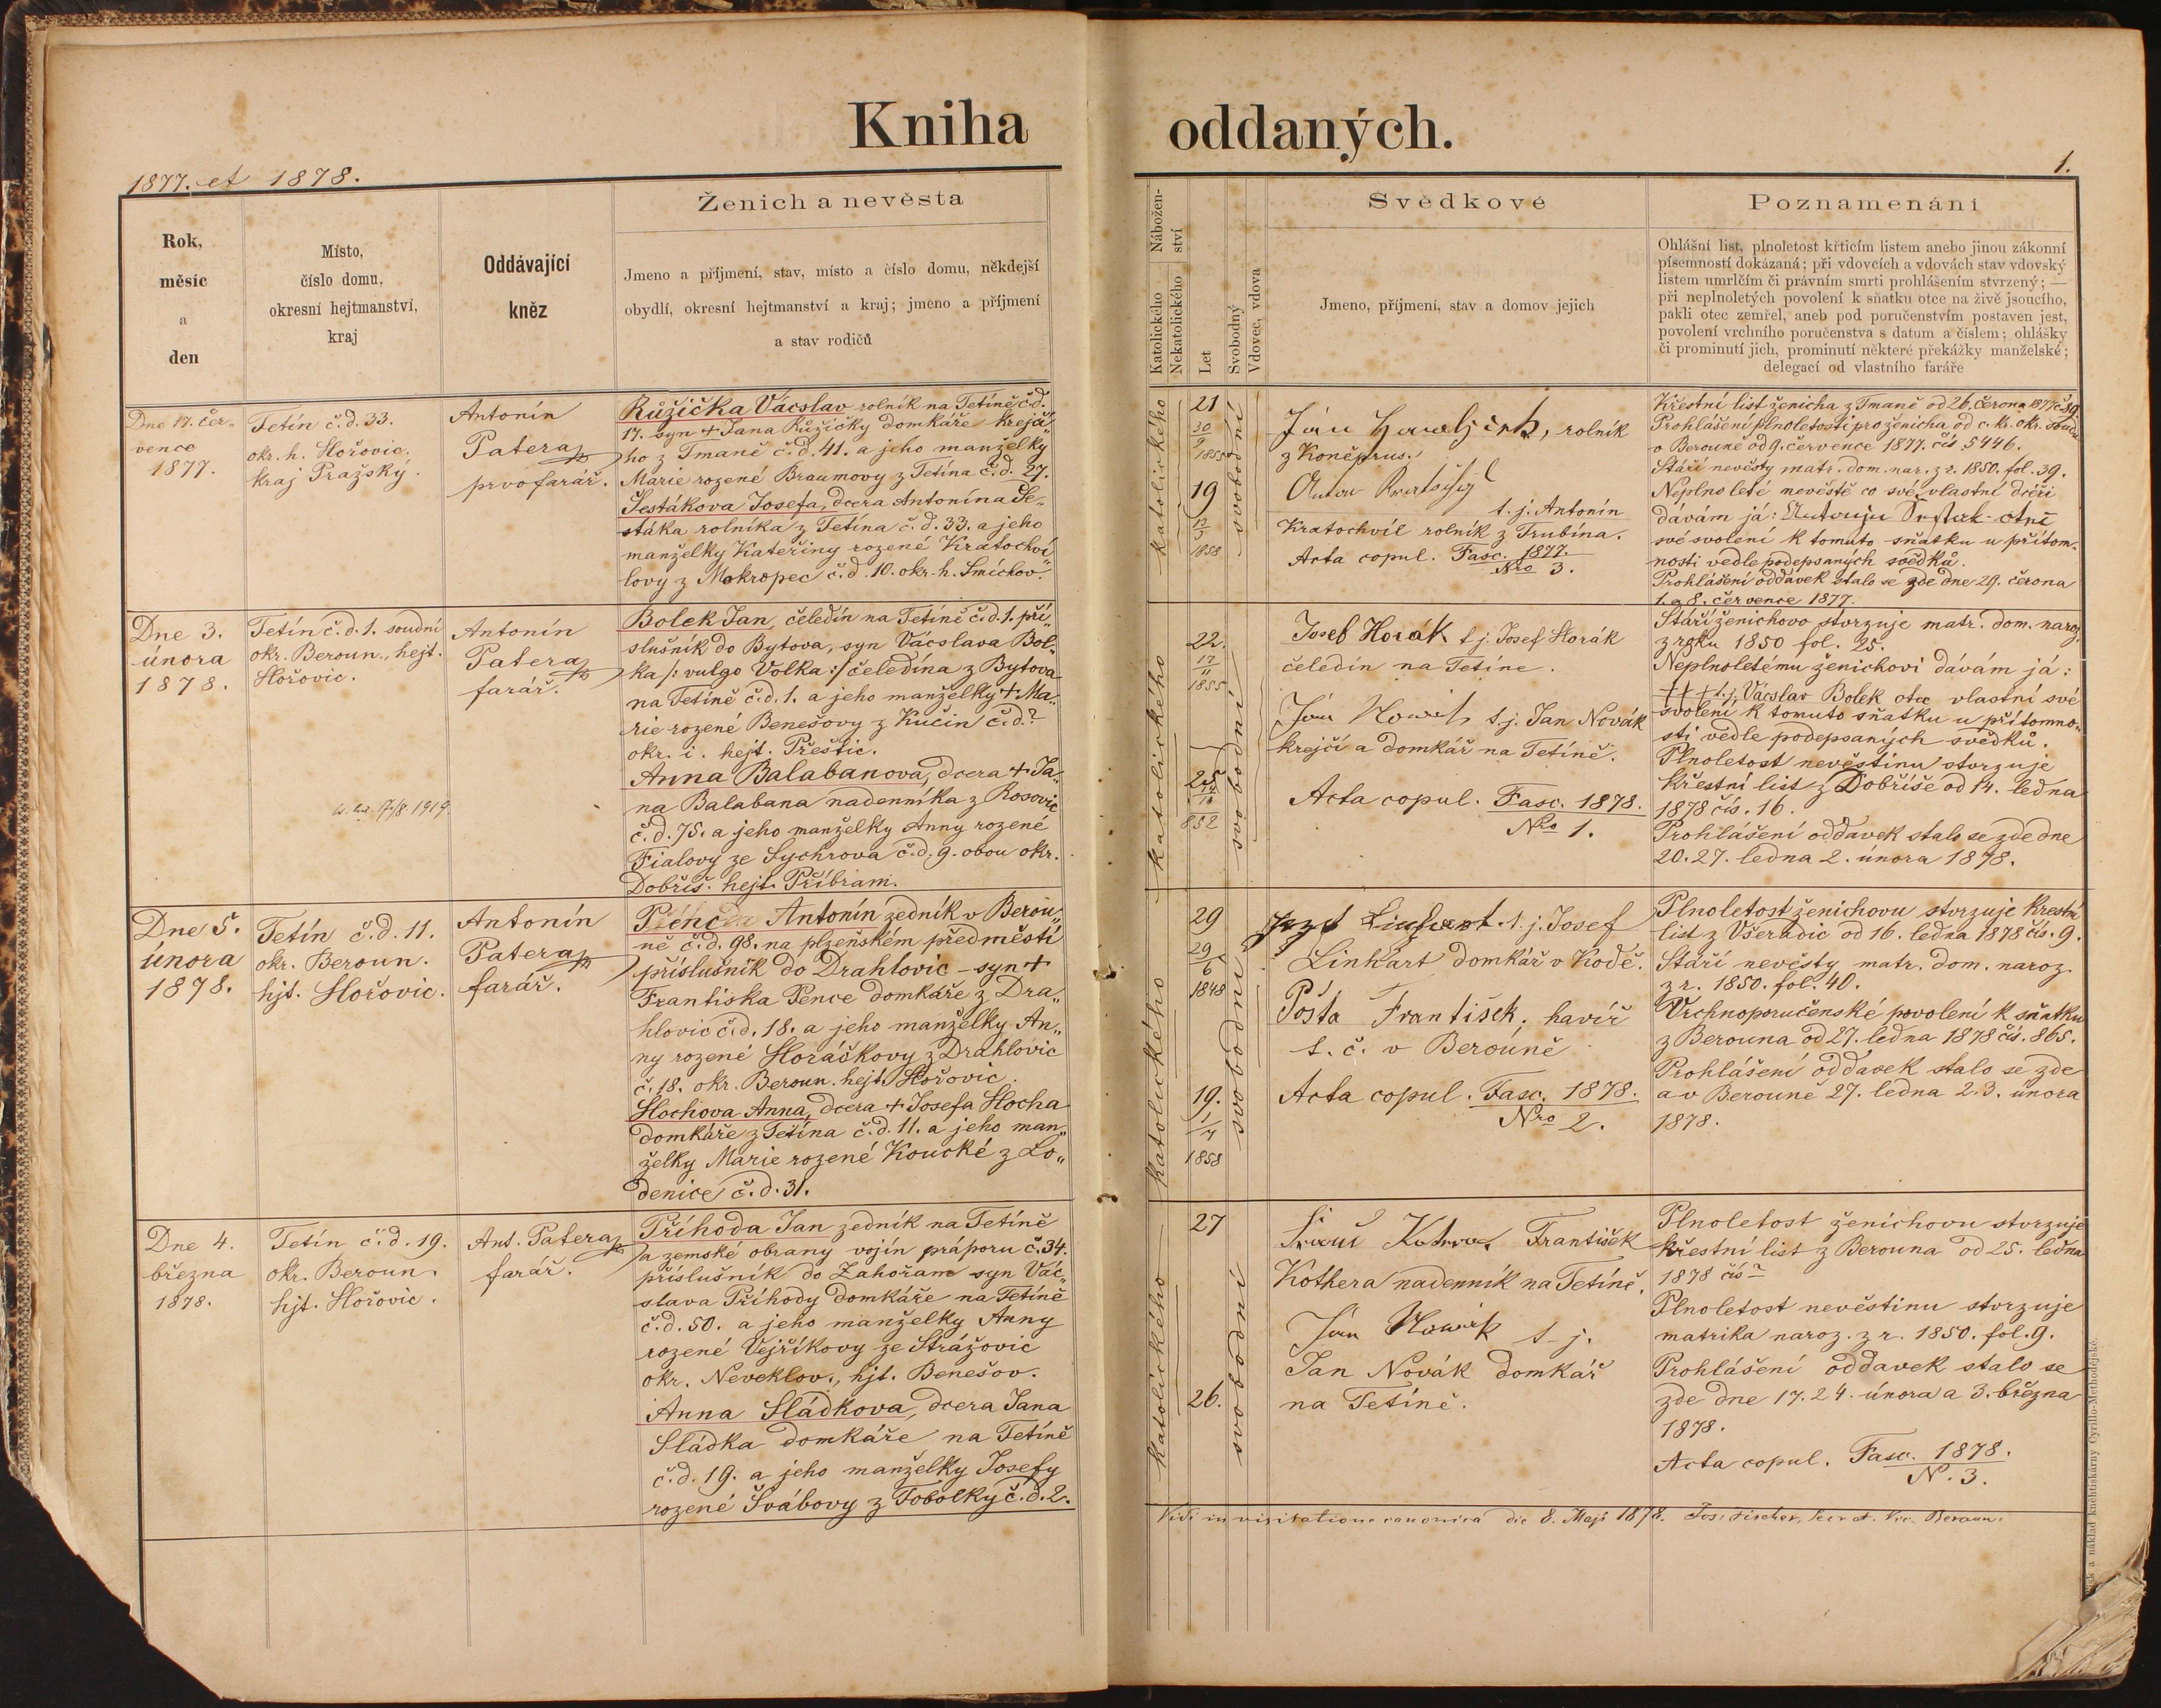 Kniha oddaných.
1877. et 1878.
1.
Rok,
měsíc
a
den
Místo,
číslo domu,
okresní hejtmanství,
kraj
Oddávající
kněz
Ženich a nevěsta
Jmeno a příjmení, stav, místo a číslo domu, někdejší
obydlí, okresní hejtmanství a kraj; jmeno a příjmení
a stav rodičů
Nábožen-
ství
Katolického
Nekatolického
Let
Svobodný
Vdovec, vdova
Svědkové
Jmeno, příjmení, stav a domov jejich
Poznamenání
Ohlášní list, plnoletost křticím listem anebo jinou zákonní
písemností dokázaná; při vdovcích a vdovách stav vdovský
listem umrlčím či právním smrti prohlášením stvrzený; —
při neplnoletých povolení k sňatku otce na živě jsoucího,
pakli otec zemřel, aneb pod poručenstvím postaven jest,
povolení vrchního poručenstva s datum a číslem; ohlášky
či prominutí jich, prominutí některé překážky manželské;
delegací od vlastního faráře
Dne 17. čer„
vence
1877.
Tetín č.d. 33.
okr. h. Hořovic.
kraj Pražský.
Antonín
Patera
prvofarář.
Růžička Václav rolník na Tetíně č.d.
17. syn + Jana Růžičky domkáře krejčí„
ho z Tmaně č.d. 41. a jeho manželky
Marie rozené Braumovy z Tetína č.d. 27.
Šestákova Josefa, dcera Antonína Še„
stáka rolníka z Tetína č.d. 33. a jeho
manželky Kateřiny rozené Kratochví„
lovy z Mokropec č.d. 10. okr. h. Smíchov.
katolického
21
30
9
1855
19
12
3
1858
svobodní
Jan , rolník
z Koněprus.
Anton t. j. Antonín
Kratochvíl rolník z Trubína.
Acta copul. Fasc. 1877.
Nro 3.
Křestní list ženicha z Tmaně od 26. června 1877 č. 39.
Prohlášení plnoletosti pro ženicha od c. k. okr. soudu
v Berouně od 9. července 1877. čís 5446.
Stáří nevěsty matr. dom. nar. z r. 1850. fol. 39.
Neplnoleté nevěstě co své vlastní dceři
dávám já: otec
své svolení k tomuto sňatku u přítom„
nosti vedlepodepsaných svědků.
Prohlášení oddavek stalo se zde dne 29. června
1. a 8. července 1877.
Dne 3.
února
1878.
Tetín č.d. 1. soudní
okr. Beroun., hejt.
Hořovic.
17/8 1919
Antonín
Patera
farář.
Bolek Jan, čeledín na Tetíně č.d. 1. pří„
slušník do Bytova, syn Václava Bol„
ka /: vulgo Volka :/ čeledína z Bytova
na Tetíně č.d. 1. a jeho manželky + Ma„
rie rozené Benešovy z Kučin č.d.?
okr. i. hejt. Přeštic.
Anna Balabanova, dcera + Ja„
na Balabana nadenníka z Rosovic
č.d. 75. a jeho manželky Anny rozené
Fialovy ze Sychrova č.d. 9. obou okr.
Dobříš. hejt. Příbram.
katolického
22.
17
11
1855
25
14
10
852
svobodní
Josef Horák t. j. Josef Horák
čeledín na Tetíně.
Jan Nowak t. j. Jan Novák
krejčí a domkář na Tetíně.
Acta copul. Fasc. 1878.
Nro 1.
Stáří ženichovo stvrzuje matr. dom. naroz.
z roku 1850 fol. 25.
Neplnoletému ženichovi dávám já:
+++ t. j. Václav Bolek otec vlastní své
svolení k tomuto sňatku u přítomno„
sti vedle podepsaných svědků.
Plnoletost nevěstinu stvrzuje
křestní list z Dobříše od 14. ledna
1878 čís. 16.
Prohlášení oddavek stalo se zde dne
20. 27. ledna 2. února 1878.
Dne 5.
února
1878.
Tetín č.d. 11.
okr. Beroun.
hjt. Hořovic.
Antonín
Patera
farář.
Antonín zedník v Berou„
ně č.d. 98. na plzeňském předměstí
příslušník do Drahlovic – syn +
Františka Pence domkáře z Dra„
hlovic č.d. 18. a jeho manželky An„
ny rozené Horáčkovy z Drahlovic
č. 18. okr. Beroun. hejt. Hořovic.
Hochova Anna, dcera + Josefa Hocha
domkáře z Tetína č.d. 11. a jeho man„
želky Marie rozené Koucké z Lo„
denice č.d. 31.
katolického
29
29
6
1848
19.
1
7
1858
svobodní
Jozef Linhart t. j. Josef
Linhart domkář v Kodě.
Pošta František, havíř
t. č. v Berouně
Acta copul. Fasc. 1878.
Nro 2.
Plnoletost ženichovu stvrzuje křestní
list z Všeradic od 16. ledna 1878 čís. 9.
Stáří nevěsty matr. dom. naroz.
z r. 1850. fol. 40.
Vrchnoporučenské povolení k sňatku
z Berouna od 27. ledna 1878 čís. 865.
Prohlášení oddavek stalo se zde
a v Berouně 27. ledna 2. 3. února
1878.
Dne 4.
března
1878.
Tetín č.d. 19.
okr. Beroun.
hjt. Hořovic.
Ant. Patera
farář.
Příhoda Jan zedník na Tetíně
a zemské obrany vojín práporu č. 34.
příslušník do Zahořan syn Vác„
slava Příhody domkáře na Tetíně
č.d. 50. a jeho manželky Anny
rozené Vejříkovy ze Strážovic
okr. Neveklov., hjt. Benešov.
Anna Sládkova, dcera Jana
Sládka domkáře na Tetíně
č.d. 19. a jeho manželky Josefy
rozené Švábovy z Tobolky č.d. 2.
katolického
27
26.
svobodní
František
Kothera nadenník na Tetíně.
Jan Nowak t. j.
Jan Novák domkář
na Tetíně.
Plnoletost ženichovu stvrzuje
křestní list z Berouna od 25. ledna
1878 čís?
Plnoletost nevěstinu stvrzuje
matrika naroz. z r. 1850. fol. 9.
Prohlášení oddavek stalo se
zde dne 17. 24. února a 3. března
1878.
Acta copul. Fasc. 1878.
N. 3.
Vidi in visitatione canonica die 8. Maji 1878. Jos. Fischer, Secret. Vic. Beraun.
a náklad kněhtiskárny Cyrillo-Methodějské.